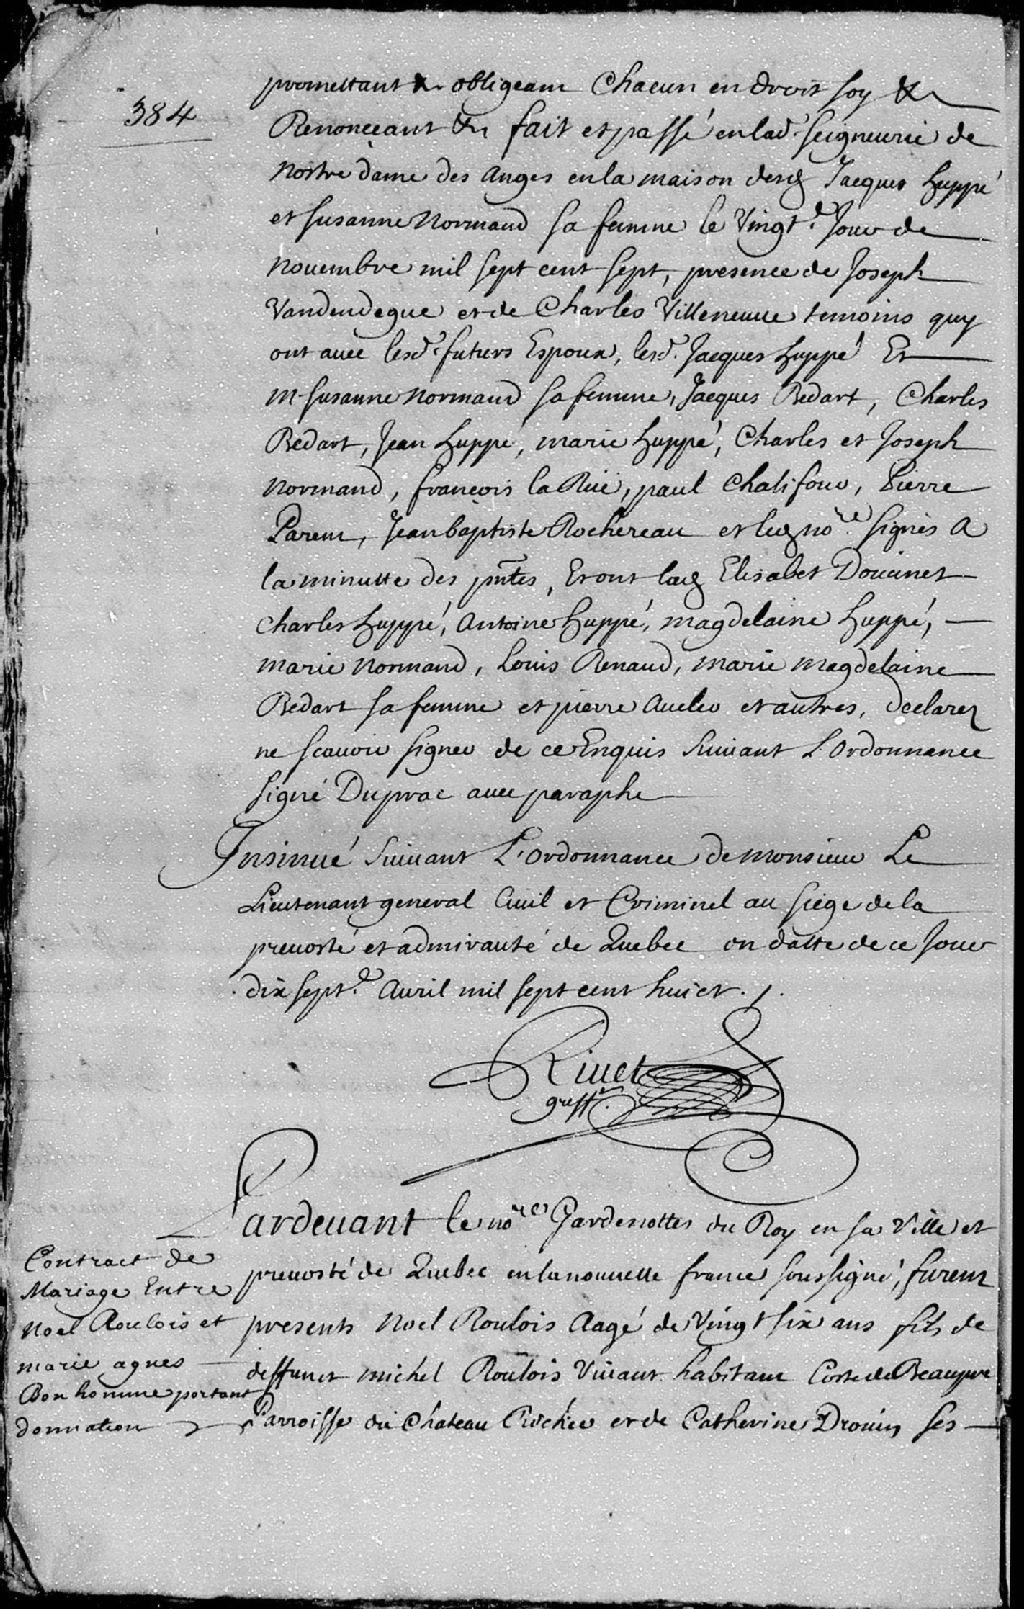 384
promettant &c obligeant Chacun en droit soy &c
Renonceant &c fait et passé en lad. Seigneurie de
nostre dame des anges en la maison desd Jacques huppé
et susanne Normand sa femme le Vingt.e Jour de
nouembre mil sept cent sept, presence de Joseph
Vandendegue et de Charles Villeneuue temoins quy
ont auec lesd. futurs Espoux, lesd. Jacques huppé Et
M susanne normand sa femme, Jacques Bedart, Charles
Bedart, Jean huppé, marie huppé, Charles et Joseph
normand, françois la Rüe, paul Chalifour, Pierre
Parent, Jean baptiste Rochereau et led no.re signés a
la minutte des pntes, Et ont lad Elisabet Doucinet
Charles huppé, antoine huppé, magdelaine huppé,
marie normand, Louis Renaud, marie magdelaine
Bedart sa femme et pierre Aucler et autres, declarez
ne scauoir signer de ce Enquis Suiuant L'ordonnance
signé Duprac auec paraphe
Insinué Suiuant L'ordonnance de monsieur Le
Lieutenant general Ciuil et Criminel au siege de la
preuosté et admirauté de Quebec en datte de ce Jour
dix sept.e Auril mil sept cent huict ./.
Riuet
greff.er
Pardeuant le no.re Gardenottes du Roy en sa Ville et
preuosté de Quebec en la nouuelle france soussigné, furent
presents Noel Roulois Aagé de Vingt six ans fils de
deffunct michel Roulois Viuant habitant Coste de Beaupré
Parroisse du Chateau Richer et de Catherine Drouin ses
Contract de
Mariage Entre
Noel Roulois et
marie agnes
Bon homme portant
donnation